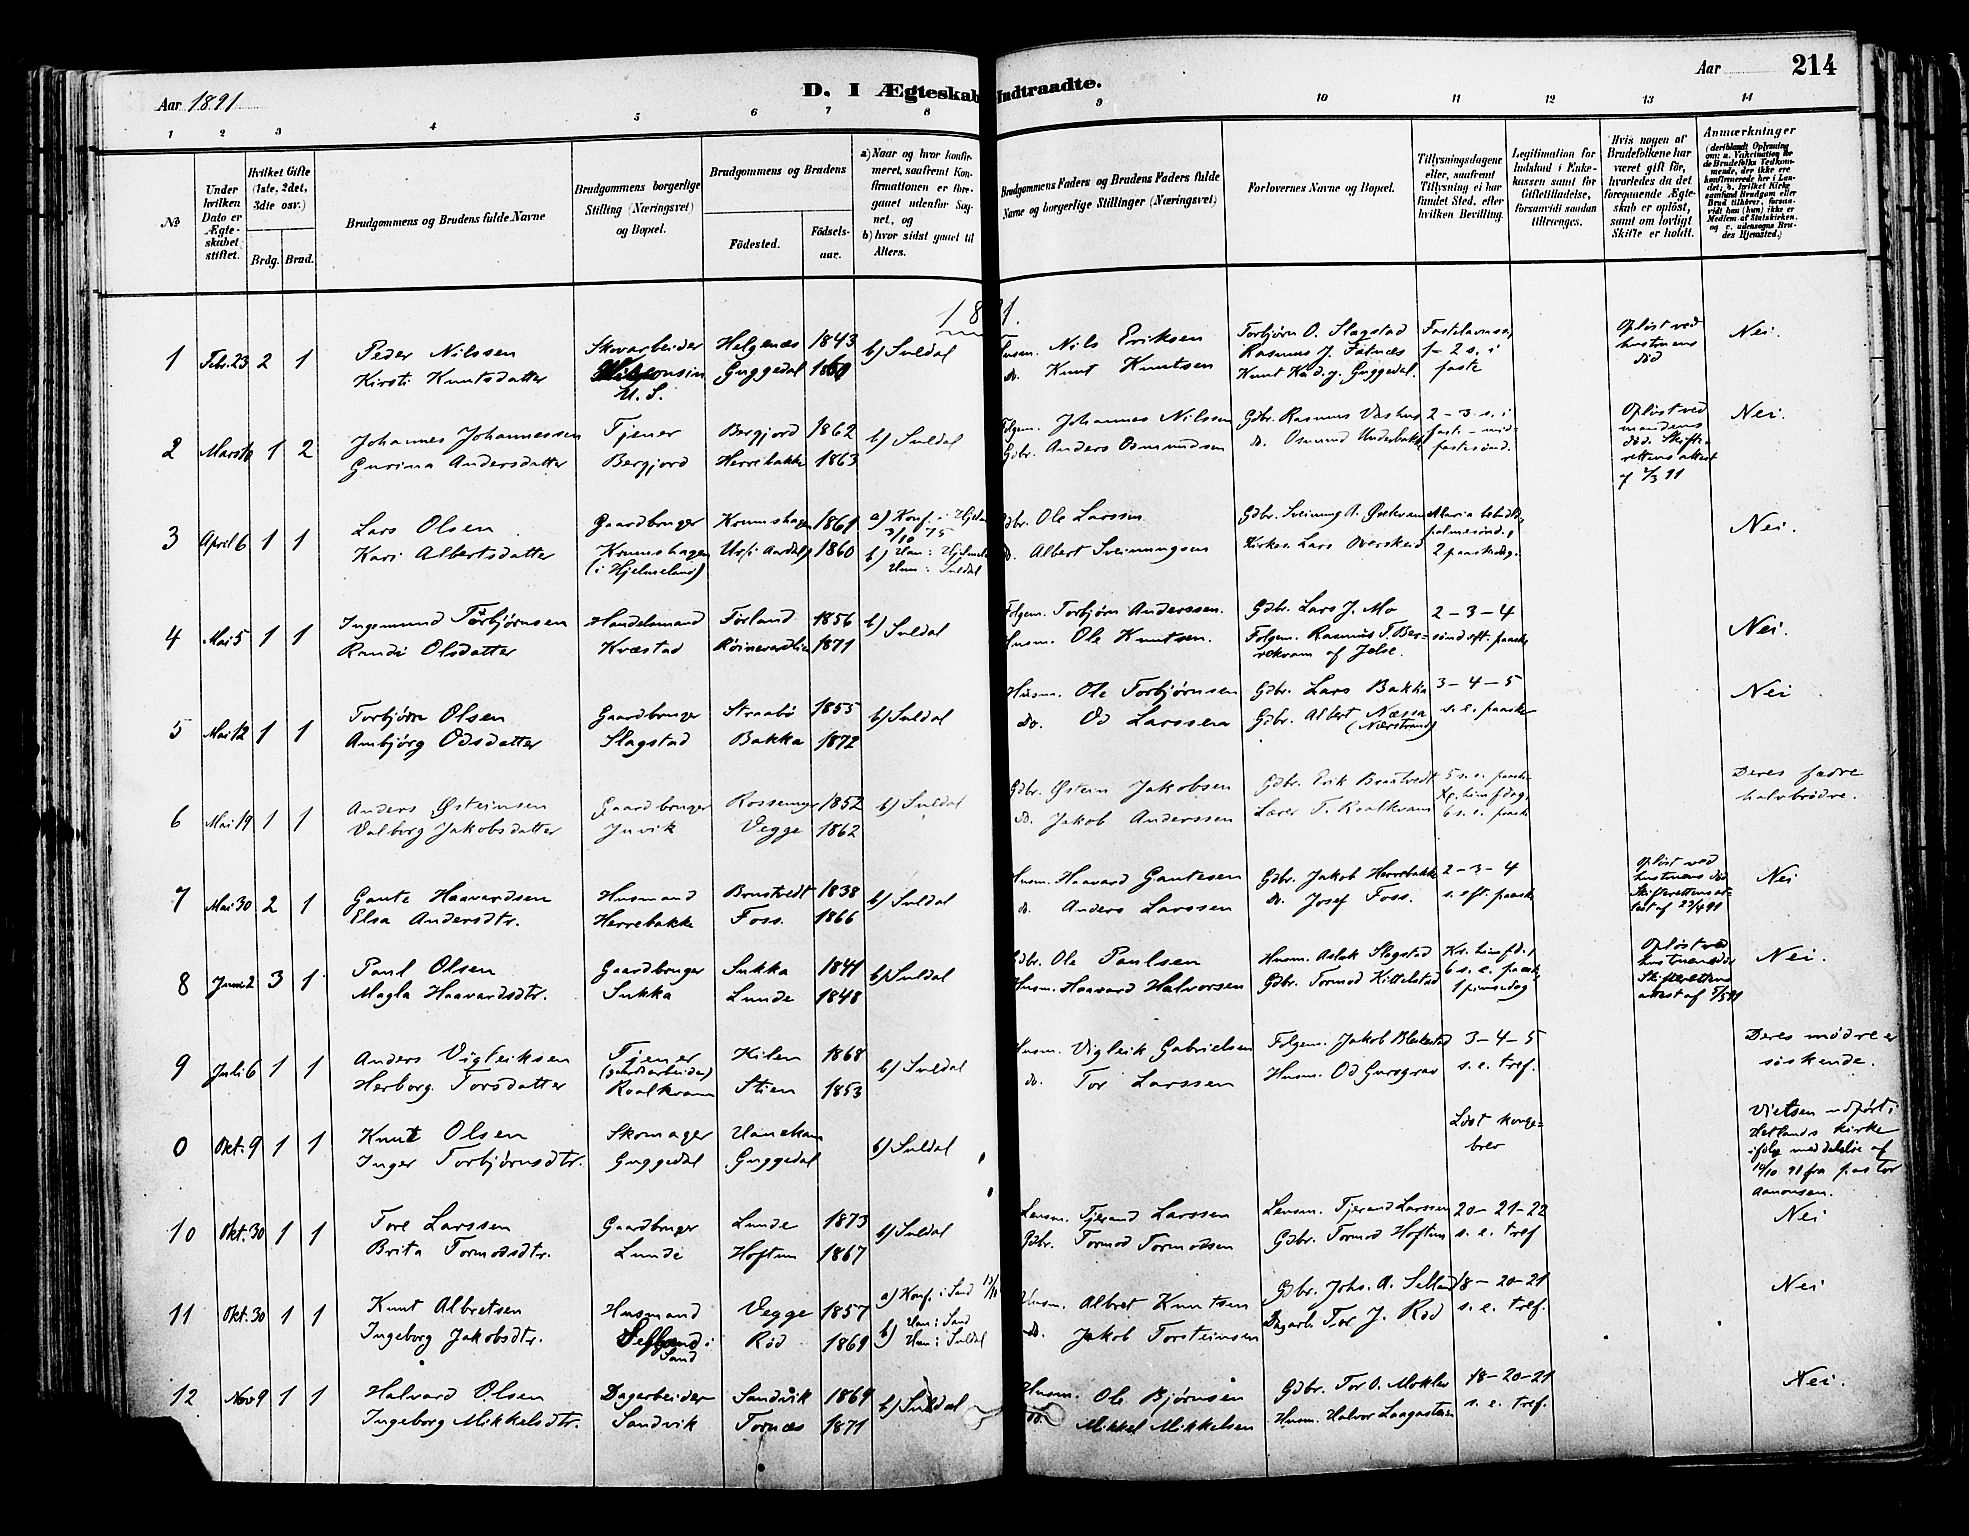 Aar 1891
D. I Ægteskab Indtraadte.
Aar
214
1 2 3 4 5 6 7 8 9 10 11 12 13 14
No
Under hvilken Dato er Ægteskabet stiftet.
Hvilket Gifte (1ste, 2det, 3die osv.)
Brdg. Brud.
Brudgommens og Brudens fulde Navne
Brudgommens borgerlige Stilling (Næringsvei) og Bopæl.
Brudgommens og Brudens
Fødested.
Fødsels-aar.
a) Naar og hvor konfirmeret, saafremt Konfirmationen er foregaaet udenfor Sognet, og
b) hvor sidst gaaet til Alters.
Brudgommens Faders og Brudens Faders fulde Navne og borgerlige Stillinger (Næringsvei)
Forlovernes Navne og Bopæl.
Tillysningsdagene eller, saafremt Tillysning ei har fundet Sted, efter hvilken Bevilling.
Legitimation for Indskud i Enkekassen samt for Giftetilladelse, forsaavidt saadan tiltrænges.
Hvis nogen af Brudefolkene har været gift før, hvorledes da det foregaaende Ægteskab er opløst, samt om lovligt Skifte er holdt.
Anmærkninger
(deriblandt Oplysning om: a. Vakcination for de Brudefolks Vedkommende, der ikke ere konfirmerede her i Landet; b. hvilket Kirkesamfund Brudgom eller Brud tilhører, forsaavidt han (hun) ikke er Medlem af Statskirken, og c. udensogns Brudes Hjemsted.)
1891.
1 Febr. 23 2 1 Peder Nilssen Skovarbeider Helgenæs 1843 b) Suldal Husm. Nils Eriksen Torbjørn O. Slagstad Fastelavnss., Opløst ved Nei.
Kirsti Knutsdatter Guggedal 1860 do. Knut Knutsen Rasmus J. 1–2 s. i hustruens
U. S. Knut Guggedal. faste død
2 Marts 1 2 Johannes Johannessen Tjener Bergjord 1862 b) Suldal Folgem. Johannes Nilssen Gdbr. Rasmus 2–3 s. i Opløst ved Nei.
Gurina Andersdatter Bergjord Herrebakke 1863 Gdbr. Anders Osmundsen do. Osmund faste – mid- mandens
fastesønd. død. Skifte-
rettens attest
3 April 6 1 1 Lars Olsen Gaardbruger Krumshagen 1861 a) Konf. i Hjelm. Gdbr. Ole Larsen Gdbr. Sveinung Maria Nei.
3/10 75
Kari Albertsdatter Krumshagen 1860 b) Han: Hjelmel. do. Albert Sveinungsen Kirkes. Lars Overskeid palmesønd.,
(i Hjelmeland) Hun: Suldal 2 paaskedag.
4 Mai 5 1 1 Ingemund Torbjørnsen Handelsmand Førland 1856 b) Suldal Folgem. Torbjørn Anderssen. Gdbr. Lars J. Mo 2–3–4 Nei.
Randi Olsdatter Kvæstad 1871 Husm. Ole Knutsen. Folgem. Rasmus T. sønd. eft. paaske
af Jelse.
5 Mai 12 1 1 Torbjørn Olsen Gaardbruger Straabø 1855 b) Suldal Husm. Ole Torbjørnsen Gdbr. Lars Bakka 3–4–5 Nei
Ambjørg Odsdatter Slagstad Bakka 1872 do. Od Larssen Gdbr. Albert Næssa s. e. paaske
(Nærstrand)
6 Mai 19 1 1 Anders Østeinsen Gaardbruger 1852 b) Suldal Gdbr. Østein Jakobsen Gdbr. Erik Brautvedt 5 s. e. paaske Deres fædre
Valborg Jakobsdatter Juvik Vegge 1862 do. Jakob Anderssen Lærer T. Roalkvam Kr. himfdag halvbrødre.
6 s. e. paaske
7 Mai 30 2 1 Gaute Haavardsen Husmand 1838 b) Suldal Husm. Haavard Gautesen Gdbr. Jakob Herrebakke 2–3–4 Opløst ved Nei
Elsa Andersdtr. Herrebakke Foss. 1866 do. Anders Larssen do. Josef Foss. s. eft. paaske hustruens død
Skifterettens at-
test af 23/4 91
8 Juni 2 3 1 Paul Olsen Gaardbruger Sukka 1841 b) Suldal Gdbr. Ole Paulsen Husm. Aslak Slagstad Kr. himfd., Opløst ved Nei.
Magla Haavardsdtr. Sukka Lunde 1848 Husm. Haavard Halvorsen Gdbr. Tormod Kittelstad 6 s. e. paaske hustruens død
1 pinsedag Skifterettens
attest af 5/5 91
9 Juli 6 1 1 Anders Vigleiksen Tjener Kilen 1868 b) Suldal Husm. Vigleik Gabrielsen Folgem. Jakob 3–4–5 Deres mødre er
(gaardsarbeider)
Herborg Torsdatter Roalkvam Stien 1853 do. Tor Larssen Husm. Od s. e. tref. søskende.
0 Okt. 9 1 1 Knut Olsen Skomager b) Suldal Løst konge- Vielsen udført i
Inger Torbjørnsdtr. Guggedal Guggedal brev Hetlands kirke
ifølg meddelelse af
14/10 91 fra pastor
Aanonsen.
10 Okt. 30 1 1 Tore Larssen Gaardbruger Lunde 1873 b) Suldal Lensm. Tjerand Larssen Lensm. Tjerand Larssen 20–21–22 Nei
Brita Tormodsdtr. Lunde Hoftun 1867 Gdbr. Tormod Tormodsen Gdbr. Tormod Hoftun s. e. tref
11 Okt. 30 1 1 Knut Albretsen Husmand Vegge 1857 a) Konf. i Sand Husm. Albret Knutsen Gdbr. Johs. A. Selland 18–20–21 Nei
Ingeborg Jakobsdtr. Selland i Sand Rød 1869 b) Han: Sand Hun: Suldal do. Jakob Torsteinsen Dagarb. Tor J. Rød s. e. tref.
12 Nov 9 1 1 Halvard Olsen Dagarbeider Sandvik 1869 b) Suldal Husm. Ole Bjørnsen Gdbr. Tor O. Moklev 18–20–21 Nei.
Ingeborg Mikkelsdtr. Sandvik Tornæs 1871 do. Mikkel Mikkelsen Husm. Halvor s. e. tref.